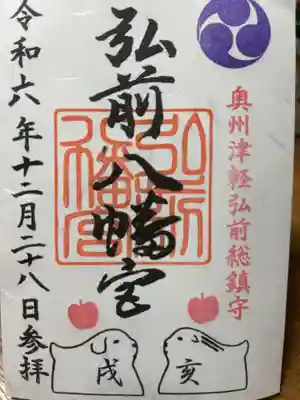 奥州津軽弘前総鎮守
弘前八幡宮
弘前八幡宮
令和六年十二月二十八日参拝
戌
亥